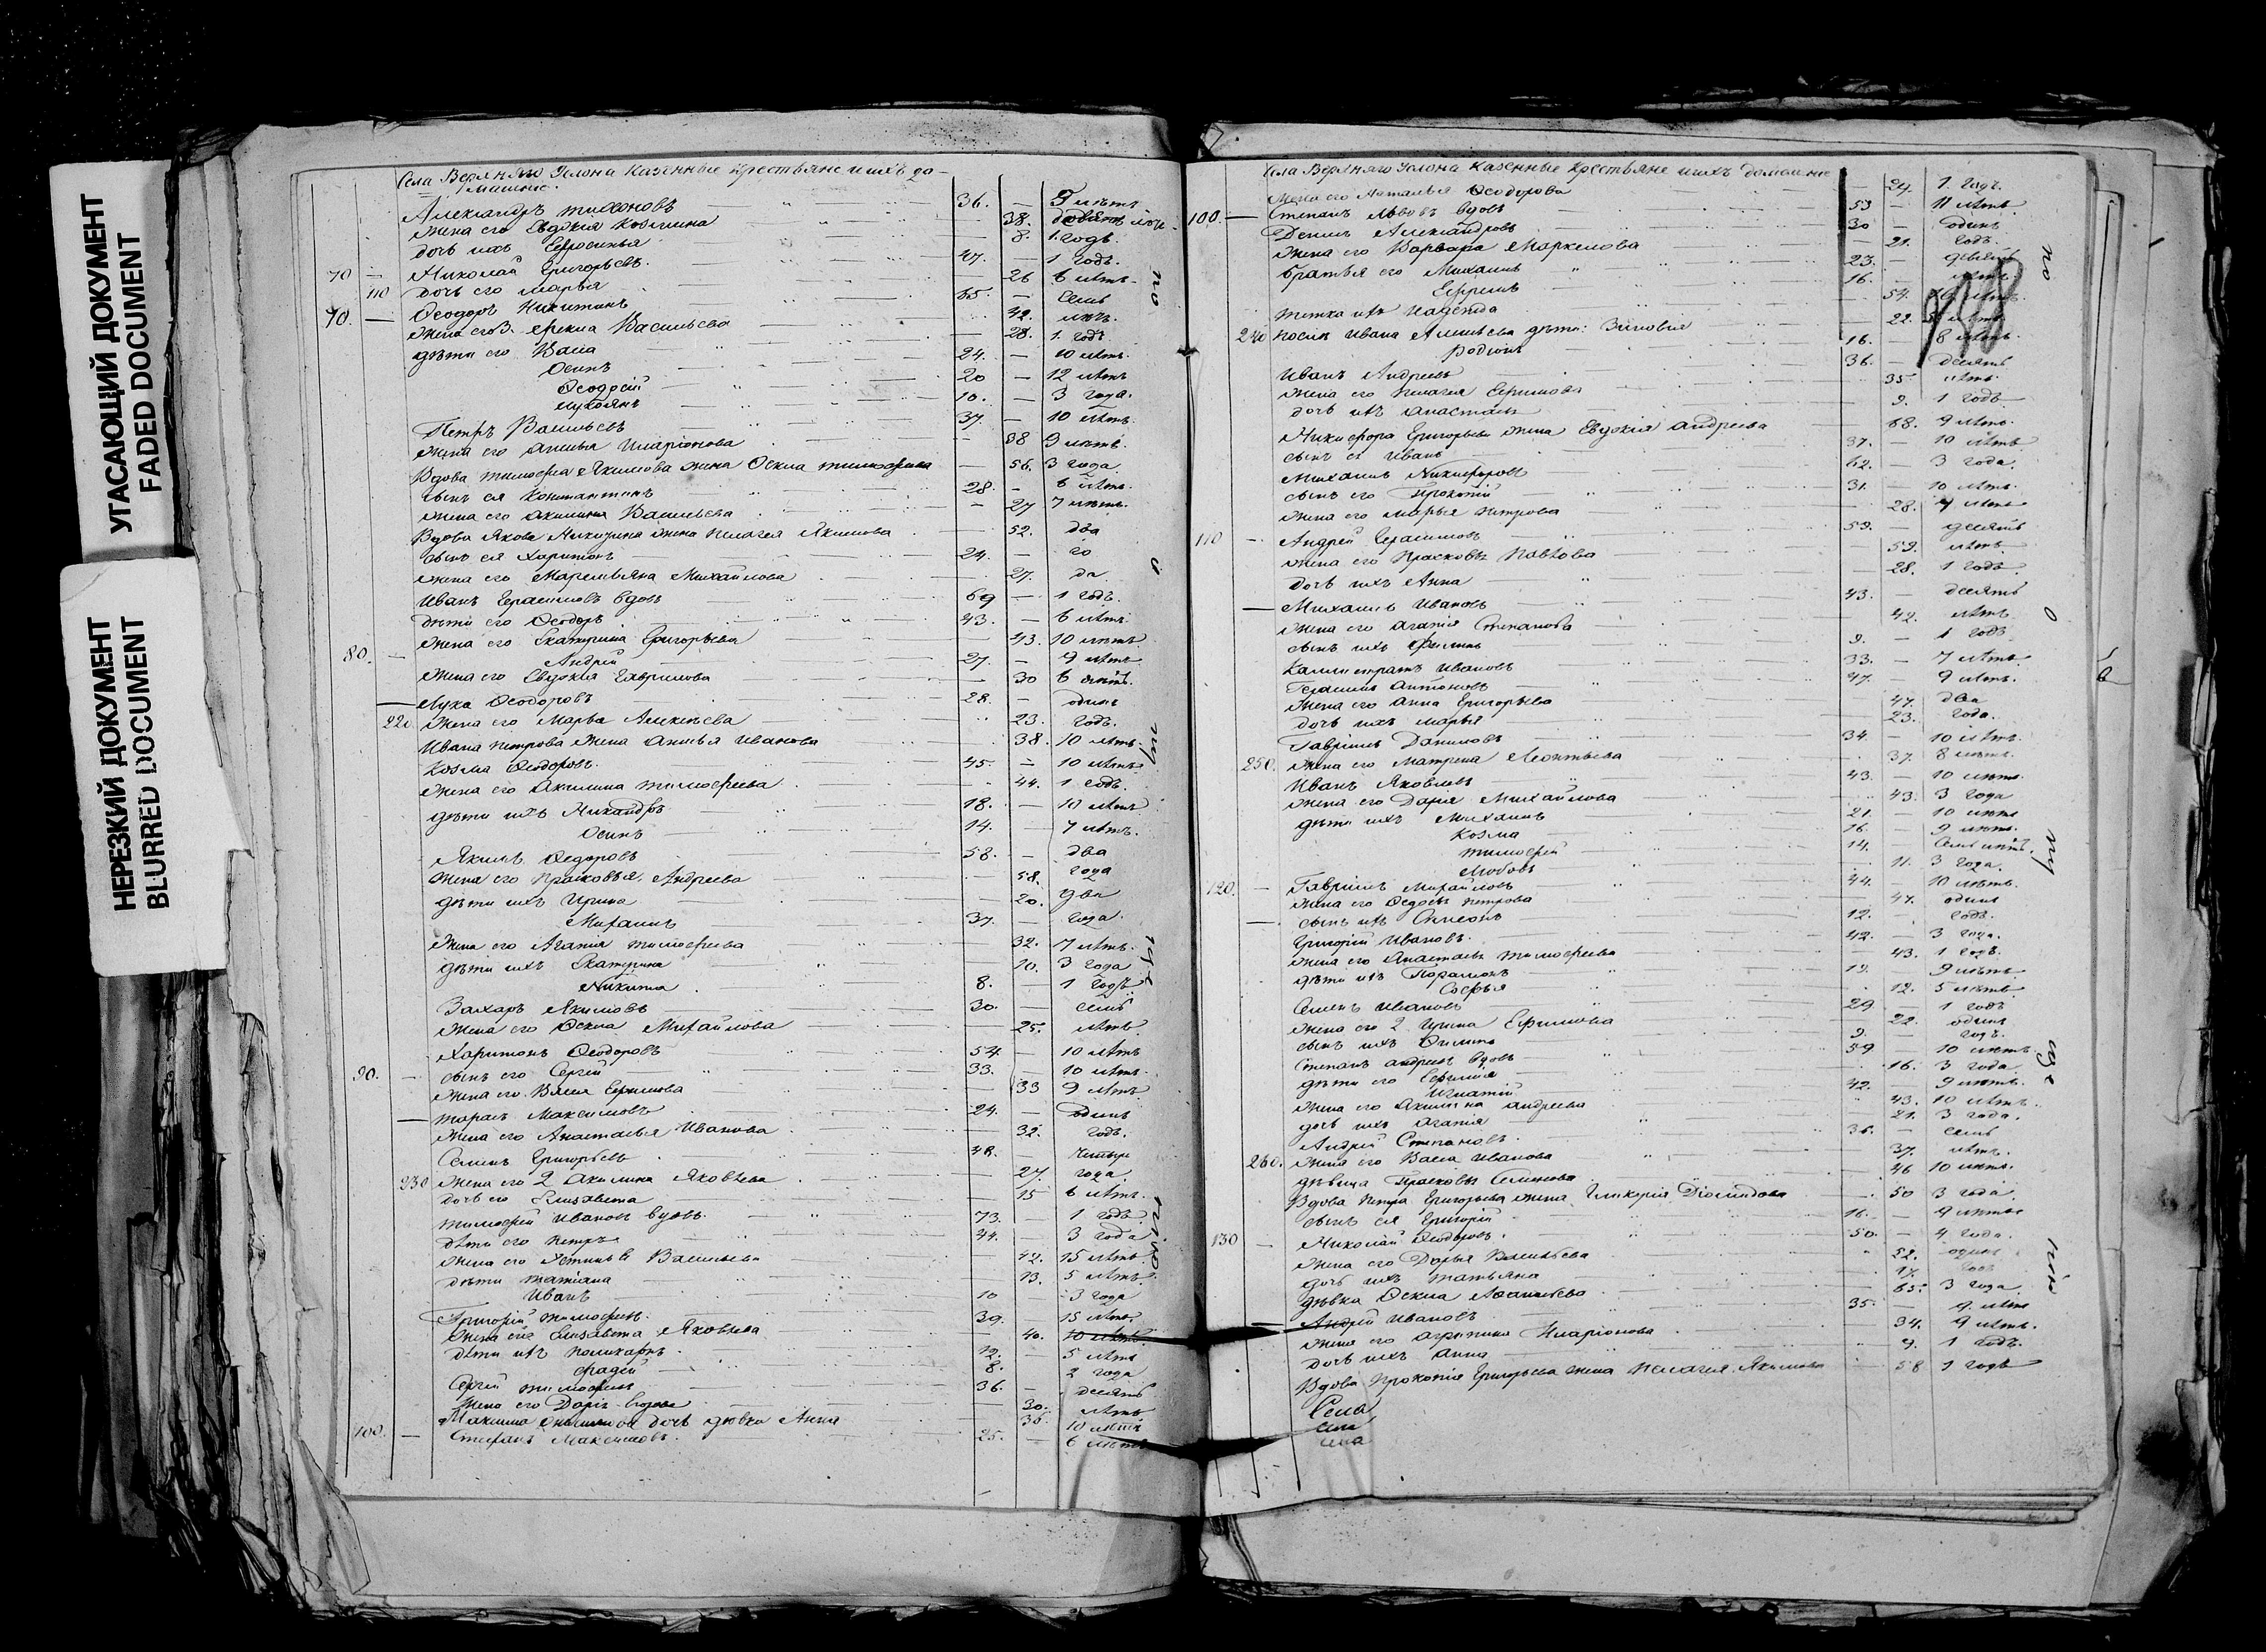 УГАСАЮЩИЙ ДОКУМЕНТ
FADED DOCUMENT
НЕРЕЗКИЙ ДОКУМЕНТ
BLURRED DOCUMENT
Села Верхняго Услона Казенные крестьяне и ихъ до-
машнiе.
Александръ Тихоновъ 36. — 5 лѣтъ
жена его Евдокiя Козмина 38.
дочь ихъ Ефросинья 8. 1. годъ.
70 — Николай Григорьевъ. 47. — 1 годъ.
110 дочь его Марья 26 6 лѣтъ.
70. — Ѳеодоръ Никитинъ 65. — семь
жена его 3. Васильева 42. лѣтъ.
дѣти его Васа 28. 1. годъ
Осипъ 24. — 10 лѣтъ.
Ѳеодосiй 20 — 12 лѣтъ
Лукоянъ 10. — 3 года.
Петръ Васильевъ 37. — 10 лѣтъ.
жена его Анисья Иларiонова 38 9 лѣтъ.
Вдова Тимофея Якимова жена Ѳекла Тимофеева — 56. 3 года.
сынъ ея Константинъ 28. — 6 лѣтъ.
жена его Акилина Васильева — 27 7 лѣтъ.
Вдова Якова жена Пелагея Якимова — 52. два
сынъ ея Харитонъ 24. — го
жена его Маремьяна Михайлова 27. да
Иванъ Герасимовъ вдовъ 69 — 1 годъ.
дѣти его Ѳеодоръ 43. — 6 лѣтъ
жена его Екатерина Григорьева 43. 10 лѣтъ
80. — Андрей 27. — 9 лѣтъ
жена его Евдокiя Гаврилова — 30 6 лѣтъ.
— Лука Ѳеодоровъ 28. — одинъ
220 жена его Марѳа Алексѣева 23. годъ.
Ивана Петрова жена Анисья Иванова 38. 10 лѣтъ
Козма Ѳеодоровъ. 45 — 10 лѣтъ
жена его Акилина Тимофеева 44. 1 годъ.
дѣти ихъ Никандръ 18. — 10 лѣтъ
Осипъ 14. 7 лѣтъ.
Якимъ Ѳедоровъ 58. — два
жена его Прасковья Андреева 58. года
дѣти ихъ Ирина 20. два
Михаилъ 37. — года.
жена его Агапiя Тимофеева 32. 7 лѣтъ.
дѣти ихъ Екатерина 10. 3 года
Никита 8. — 1 годъ
Захаръ Якимовъ 30. — семь
жена его Ѳекла Михайлова — 25. лѣтъ
Харитонъ Ѳеодоровъ 54 — 10 лѣтъ
90. — сынъ его Сергей 33. — 10 лѣтъ.
жена его Васса Ефимова — 33 9 лѣтъ.
— Тарасъ Максимовъ 24. — одинъ
жена его Анастасья Иванова 32. годъ.
Семенъ Григорьевъ 48. — четыре
230 жена его 2 Акилина Яковлева 27. года.
дочь его Елизавета — 15 6 лѣтъ.
Тимофей Ивановъ вдовъ. 73. — 1 годъ
дѣти его Петръ 44. 3 года
жена его Устинья Васильева 42. 15 лѣтъ.
дѣти Татiана 13. 5 лѣтъ.
Иванъ 10 3 года
Григорiй Тимофеевъ. 39. 15 лѣтъ.
жена его Елизавета Яковлева — 40. 10 лѣтъ
дѣти ихъ Поликарпъ 12. — 5 лѣтъ
Фадей 8. 2 года
Сергей Тимофеевъ 36. — десять
жена его Дарiя 30. лѣтъ
Максима дочь дѣвка Анна 36. 10 лѣтъ
100. — Стефанъ Максимовъ. 25. — 6 лѣтъ
Села Верхняго Услона Казенные крестьяне и ихъ домашнiе
жена его Наталья Ѳеодорова — 24. 1. годъ.
100. — Степанъ Львовъ вдовъ 53 — 11 лѣтъ
Денисъ Александровъ 30 — одинъ
жена его Варвара Маркелова — 21. годъ.
братья его Михаилъ 23. — девять
Ефремъ 16. — лѣтъ
тетка ихъ Надежда 54.
240 послѣ Ивана Алексѣева дѣти: Зиновiя 22.
Родiонъ 16. — 8 лѣтъ.
Иванъ Андреевъ 36. — десять
жена его Пелагея Ефимова 35 лѣтъ.
дочь ихъ Анастасья 9. 1 годъ
Никифора Григорьева жена Евдокiя Андреева 68. 9 лѣтъ.
сынъ ея Иванъ 37. — 10 лѣтъ
Михаилъ Никифоровъ 62. — 3 года.
сынъ его Прокопiй 31. — 10 лѣтъ.
жена его Марья Петрова 28. 4 лѣтъ
110 — Андрей Герасимовъ 59. — десять
жена его Прасковья Павлова 59. лѣтъ
дочь ихъ Анна 28. 1 годъ
— Михаилъ Ивановъ 43. — десять
жена его Агапiя Степанова 42. лѣтъ
сынъ ихъ Филипъ 9. — 1 годъ
Калистратъ Ивановъ 33. — 7 лѣтъ
Герасимъ Антоновъ 47. — 9 лѣтъ.
жена его Анна Григорьева 47. два
дочь ихъ Марья 23. года.
Гаврилъ Даниловъ 34. — 10 лѣтъ.
250. жена его Матрена Леонтьева 37. 8 лѣтъ.
Иванъ Яковлевъ 43. — 10 лѣтъ.
жена его Дарiя Михайлова 43. 3 года
дѣти ихъ Михаилъ 21. — 10 лѣтъ
Козма 16. — 9 лѣтъ.
Тимофей 14. семь лѣтъ.
Любовь 11. 3 года.
120. — Гаврилъ Михайловъ 44. — 10 лѣтъ.
жена его Ѳедосья Петрова 47. одинъ
— сынъ ихъ Симеонъ 12. — годъ.
Григорiй Ивановъ. 42. — 3 года.
жена его Анастасья Тимофеева 43. 1 годъ.
дѣти ихъ Парамонъ 19. — 9 лѣтъ
Софья 12. 5 лѣтъ
Семенъ Ивановъ 29. 1 годъ
жена его 2 Ирина Ефимова 22. одинъ
сынъ ихъ Филипъ 9. — годъ.
Степанъ Андреевъ вдовъ 59 10 лѣтъ
дѣти его Ефимiя 16. 3 года.
Игнатiй 42. — 9 лѣтъ.
жена его Акилина Андреева 43. 10 лѣтъ.
дочь ихъ Агапiя 21. 3 года.
Андрей Степановъ. 36. — семь
260. жена его Васса Иванова 37. лѣтъ.
дѣвица Прасковья Семенова 46 10 лѣтъ.
Вдова Петра Григорьева жена Гликерiя Дiомидова 50 3 года
сынъ ея Григорiй 16. — 9 лѣтъ
130 — Николай Ѳеодоровъ. 50. — 4 года.
жена его Дарья Васильева 52. одинъ
дочь ихъ Татьяна 17. годъ
дѣвка Ѳекла Аѳанасьева 65. 3 года
Андрей Ивановъ 35. — 9 лѣтъ
жена его Агрипина Иларiонова 34. 9 лѣтъ.
дочь ихъ Анна 9. 1 годъ.
Вдова Прокопiя Григорьева жена Пелагея Якимова 58 1 годъ
Села
села
села